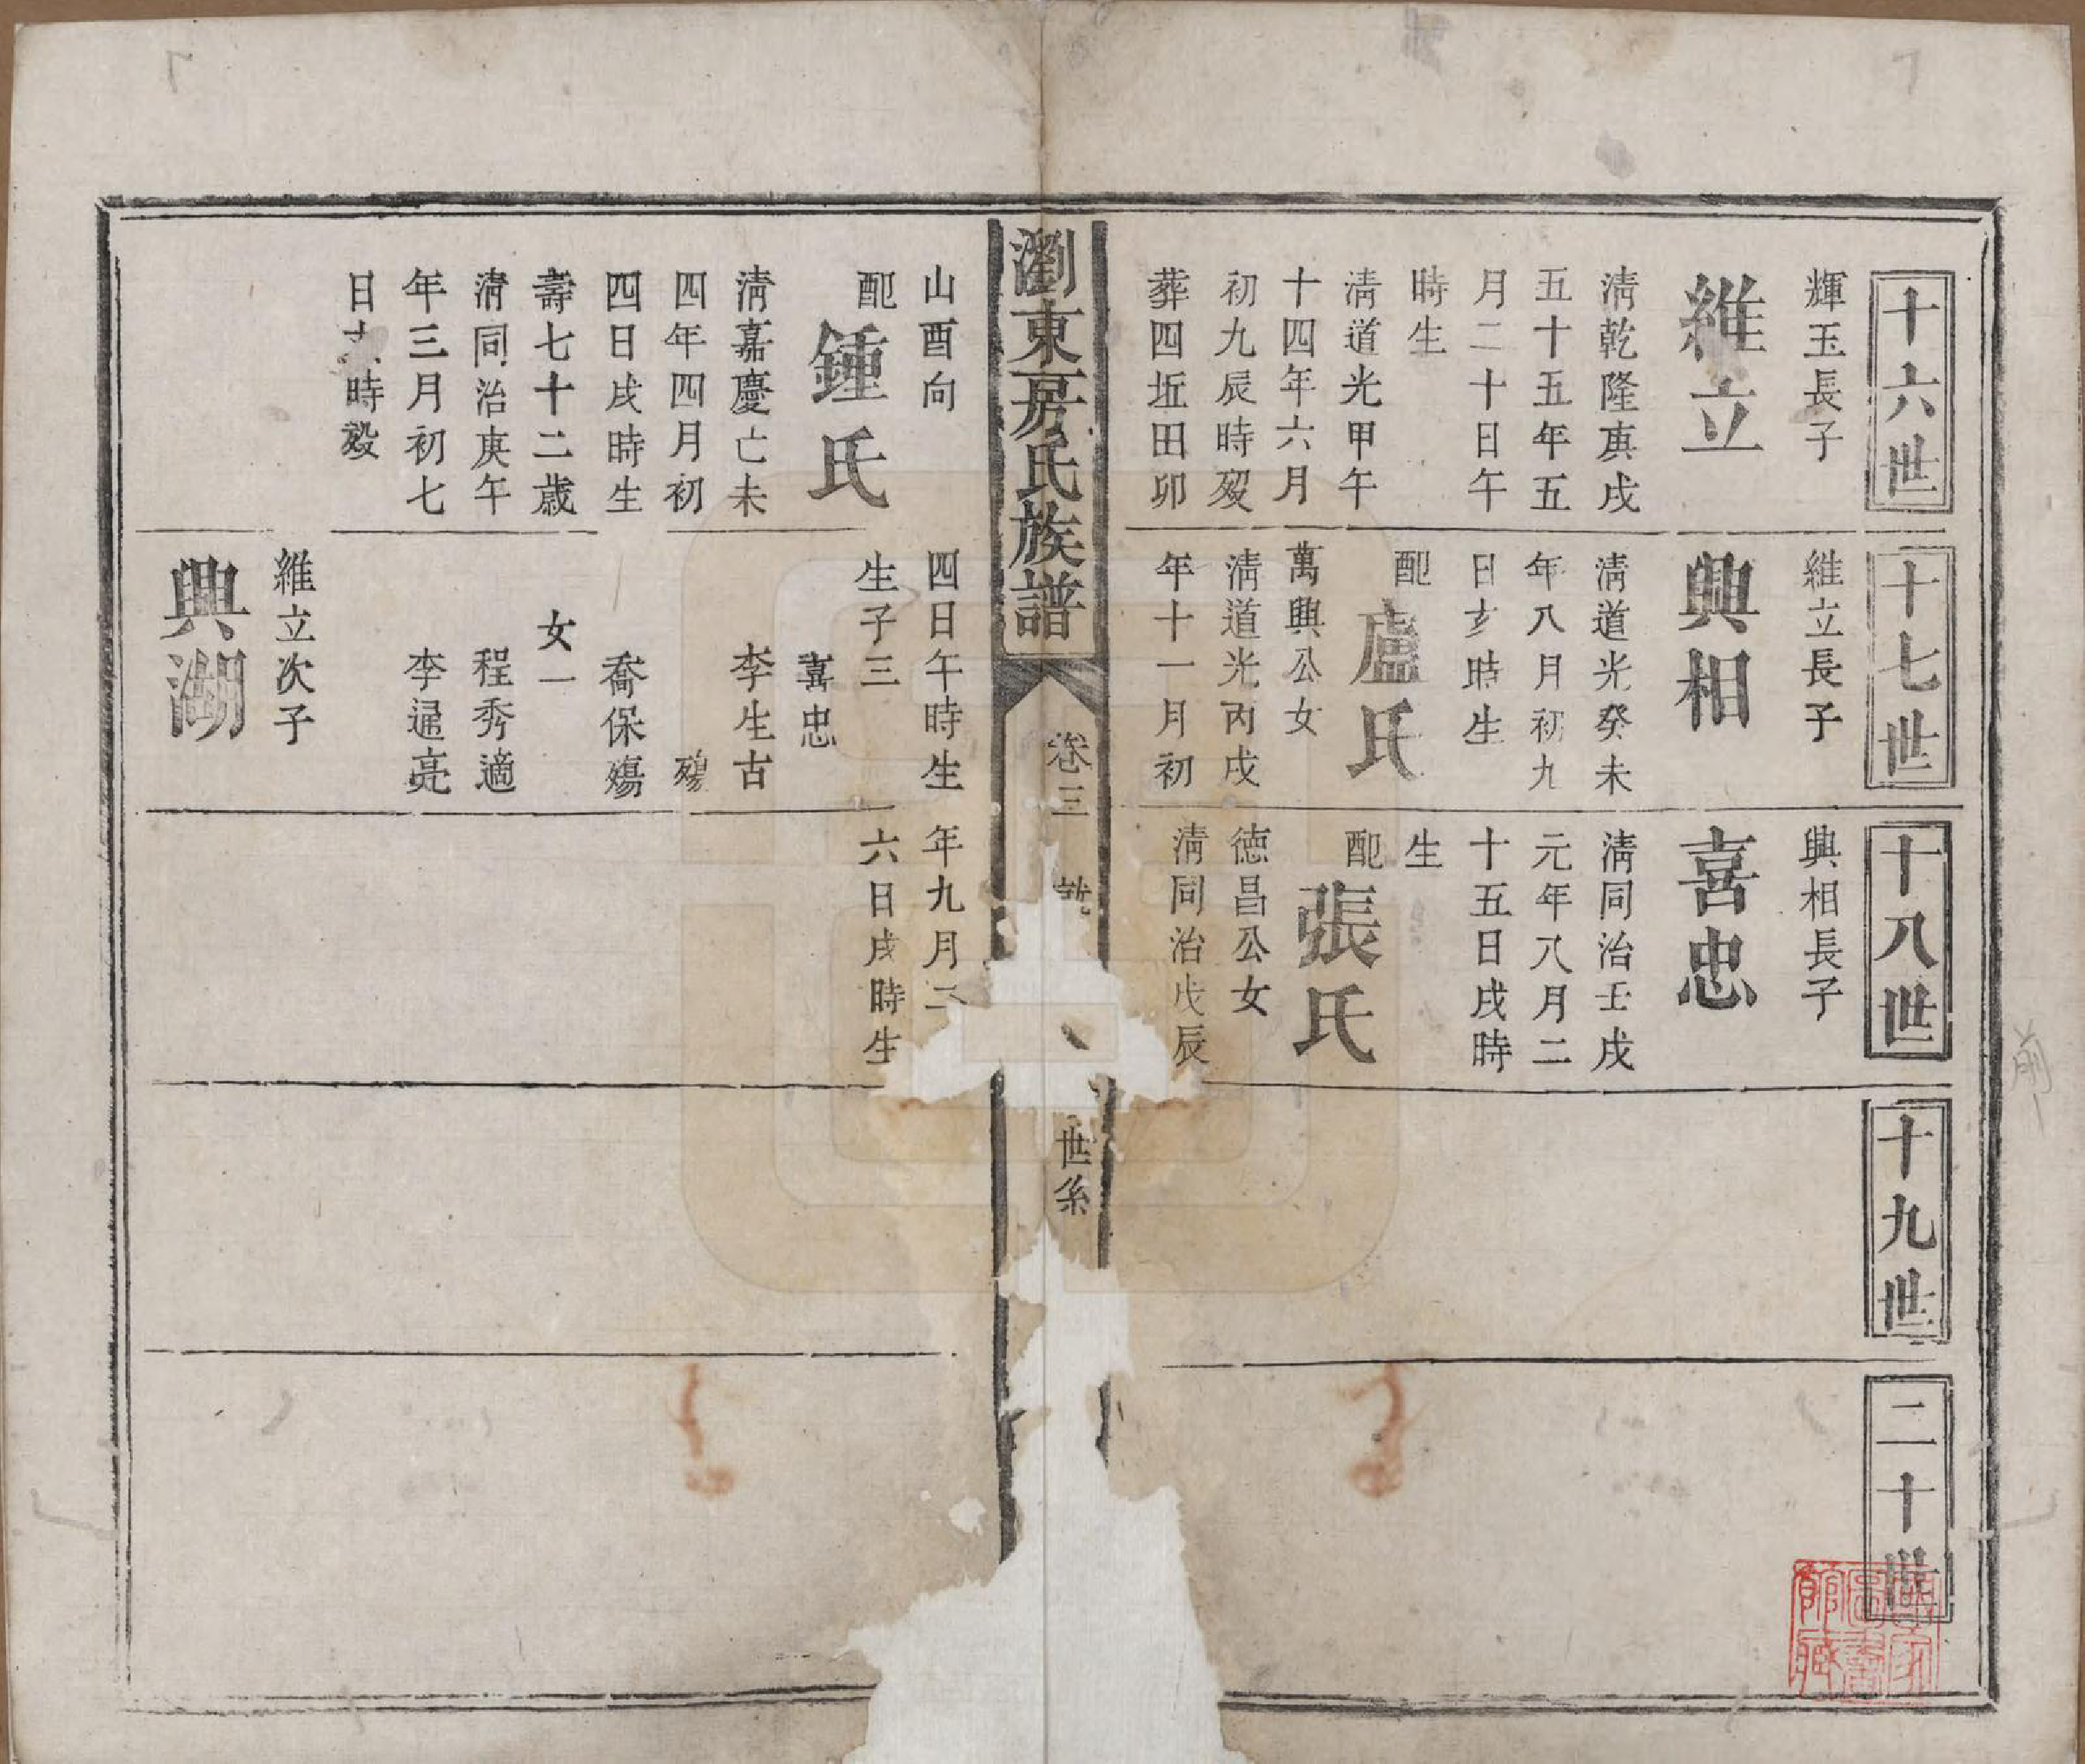 十六世
輝玉長子
維立
清乾隆庚戌
五十五年五
月二十日午
時生
清道光甲午
十四年六月
初九辰時歿
葬四坵田卯
十七世
維立長子
興相
清道光癸未
年八月初九
日亥時生
配
盧氏
萬興公女
清道光丙戌
年十一月初
十八世
興相長子
喜忠
清同治壬戌
元年八月二
十五日戌時
生
配
張氏
德昌公女
清同治戊辰
十九世
二十世
瀏東房氏族譜
卷三
世系
山酉向
配
鍾氏
清嘉慶己未
四年四月初
四日戌時生
壽七十二歲
清同治庚午
年三月初七
日 時歿
四日午時生
生子三
喜忠
李生古
殤
喬保殤
女一
程秀適
李遥亮
維立次子
興湖
年九月二
六日戌時生
國家圖書館藏